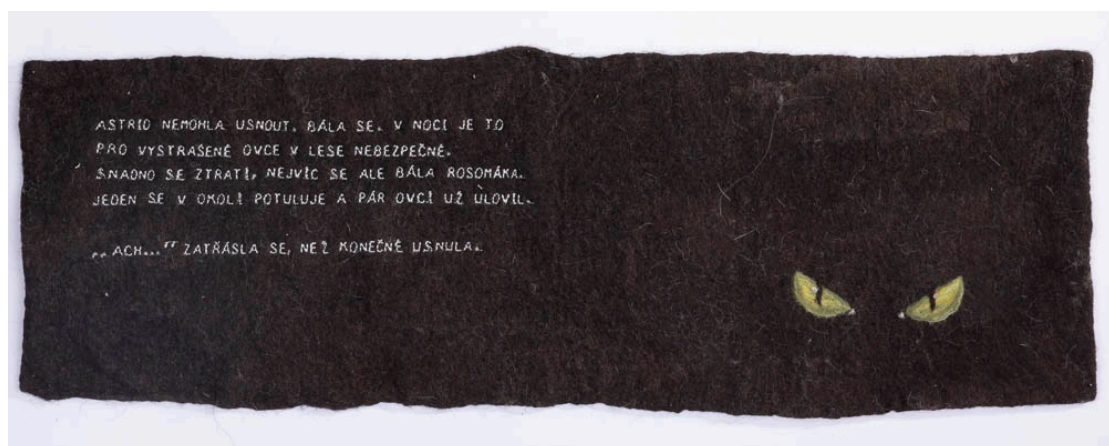 ASTRID NEMOHLA USNOUT. BÁLA SE. V NOCI JE TO
PRO VYSTRAŠENÉ OVCE V LESE NEBEZPEČNÉ.
SNADNO SE ZTRATÍ, NEJVÍC SE ALE BÁLA ROSOMÁKA.
JEDEN SE V OKOLÍ POTULUJE A PÁR OVCÍ UŽ ULOVIL.
„ACH..." ZATŘÁSLA SE, NEŽ KONEČNĚ USNULA.